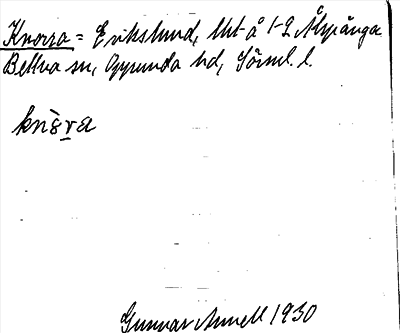 Knorra = Erikslund, lht å 1-2 Älspånga
Bettna sn, Oppunda hd, Söml. l.
knɔ̀ra
Gunnar Annell 1930